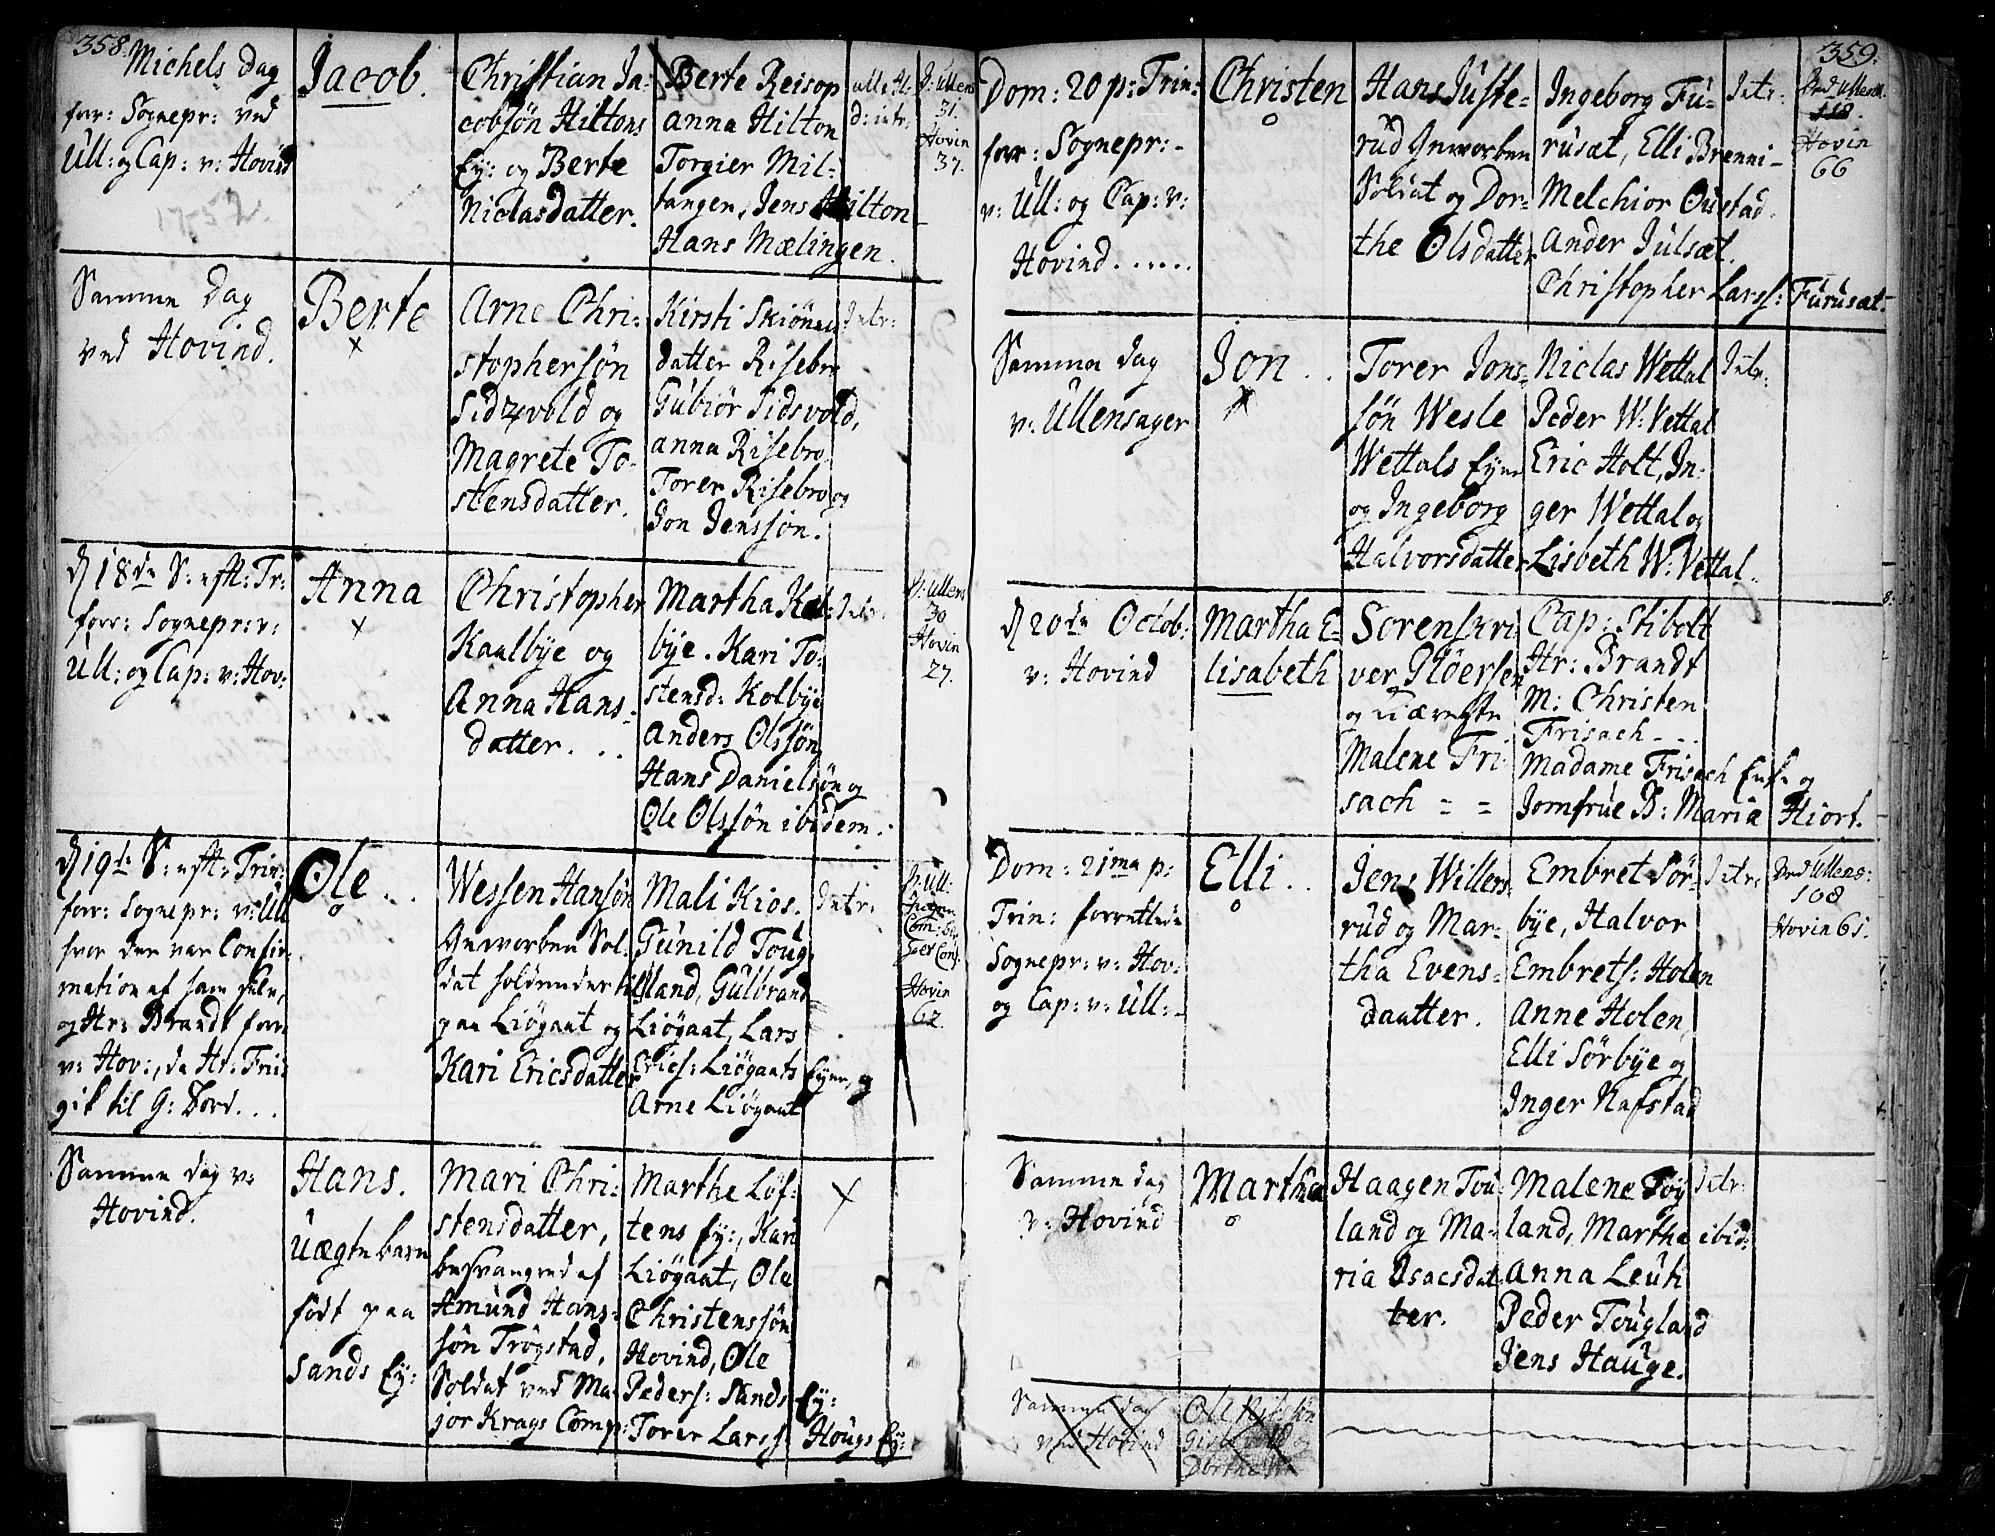 358.
Michels dag
forr: Sognepr: ved
Ull: og Cap: v: Hovind
1752.
Jacob.
Christian Ja-
cobsön Hiltons
Ey: og Berte
Niclasdatter.
Berte Reisop
Anna Hilton
Torgier Mil-
tangen, Jens Hilton
Hans Mælingen.
d: intr:
v: Ullens
31.
Hovin
37.
Samme dag
ved Hovind.
Berte
x
Arne Chri-
stophersön
Sidzvold og
Magrete To-
stensdatter.
Kirsti Skiönes
datter Risebro
Gubiör Sidsvold,
Anna Risebro
Torer Risebro og
Jon Jenssön.
Intr:
d 18de S: eft: Tr:
forr: Sognepr: v:
Ull: og Cap: v: Hov:
Anna
x
Christopher
Kaalbye og
Anna Hans-
datter. . .
Martha Kol-
bye. Kari To-
stensd: Kolbye
Anders Olssön
Hans Danielsön og
Ole Olssön ibidem.
Intr:
v: Ullens
30
Hovin
27.
d 19de S: eft: Trin:
forr: Sognepr: v: Ull
hvor der var Confir-
mation af ham selv,
og Hr: Brandt forr:
v: Hov:, da Hr: Friis
gik til G: Bord. . .
Ole . .
o
Wessen Hansön
Gevorben Sol-
dat holdende til
paa Liögaat og
Kari Ericsdatter
Mali Kios.
Gunild Toug-
land, Gulbrand
Liögaat, Lars
Erics: Liögaats Eyer, og
Arne Liögaat
Intr:
v: Ull:
Hovin
62.
Samme dag v:
Hovind.
Hans.
Uægte barn
födt paa
Sands Ey:
Mari Chri-
stensdatter,
besvangred af
Amund Hans-
sön Trögstad,
Soldat ved Ma-
jor Krags Comp:
Marthe Löf-
tens Ey:, Kari
Liögaat, Ole
Christenssön
Hovind, Ole
Peders: Sands Ey:
Torer Larss: Hougs Ey:
x
359.
Dom: 20 p: Trin:
forr: Sognepr:
v: Ull: og Cap: v:
Hovind......
Christen
o
Hans Juste-
rud Gevorben
Soldat og Dor-
the Olsdatter
Ingeborg Fu-
rusæt, Elli Brenni-
Melchior Oustad.
Ander Julsæt.
Christopher Larss: Furusæt.
Intr:
Ved Ullens:
118.
Hovin
66
Samme dag
v: Ullensager
Jon . .
x
Torer Jons-
sön Wesle
Wettals Eyer
og Ingeborg
Halvorsdatter
Niclas Wettal
Peder W: Vettal
Eric Holt, In-
ger Wettal og
Lisbeth W: Vettal.
Intr:
d 20de Octob:
v: Hovind
Martha E-
lisabeth
Soren Skri-
ver Plöersen
og Kiæreste
Malene Fri-
sach = =
Cap: Stibolt
Hr: Brandt
M: Christen
Frisach - -
Madame Frisach Enke og
Jomfrue B: Maria Hiort.
Dom: 21ma p:
Trin: forrettede
Sognepr: v: Hov:
og Cap: v: Ull:
Elli . .
o
Jens Willers-
rud og Mar-
tha Evens-
daatter.
Embret Sör-
bye, Halvor
Embrets: Holen
Anne Holen,
Elli Sörbye og
Inger Rafstad
Intr:
Ved Ullens:
108
Hovin 65.
Samme dag
v: Hovind
Martha
o
Haagen Tou-
land og Ma-
ria Isacsdat-
ter.
Malene Toy
land, Martha ibid:
Anna Leuti
Peder Tougland
Jens Hauge.
Intr:
Samme dag
ved Hovind
Ole